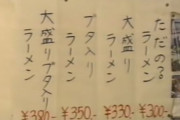 ただのラーメン ¥300-
大盛りラーメン ¥330-
ブタ入りラーメン ¥350-
大盛りブタ入りラーメン ¥390-